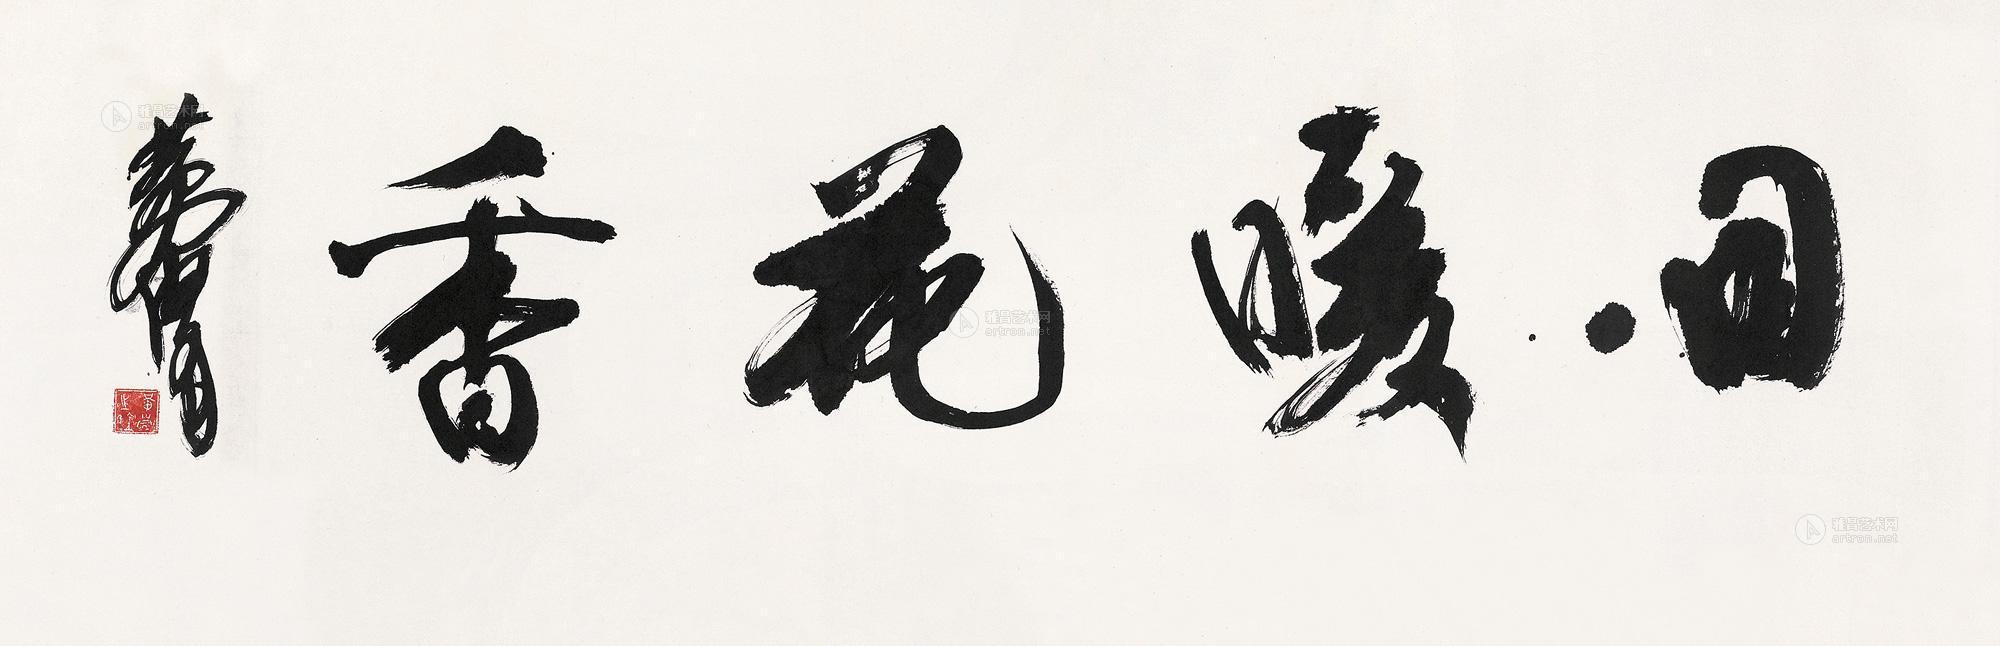 日暖花香
雅昌艺术网
artron.net
雅昌艺术网
artron.net
雅昌艺术网
artron.net